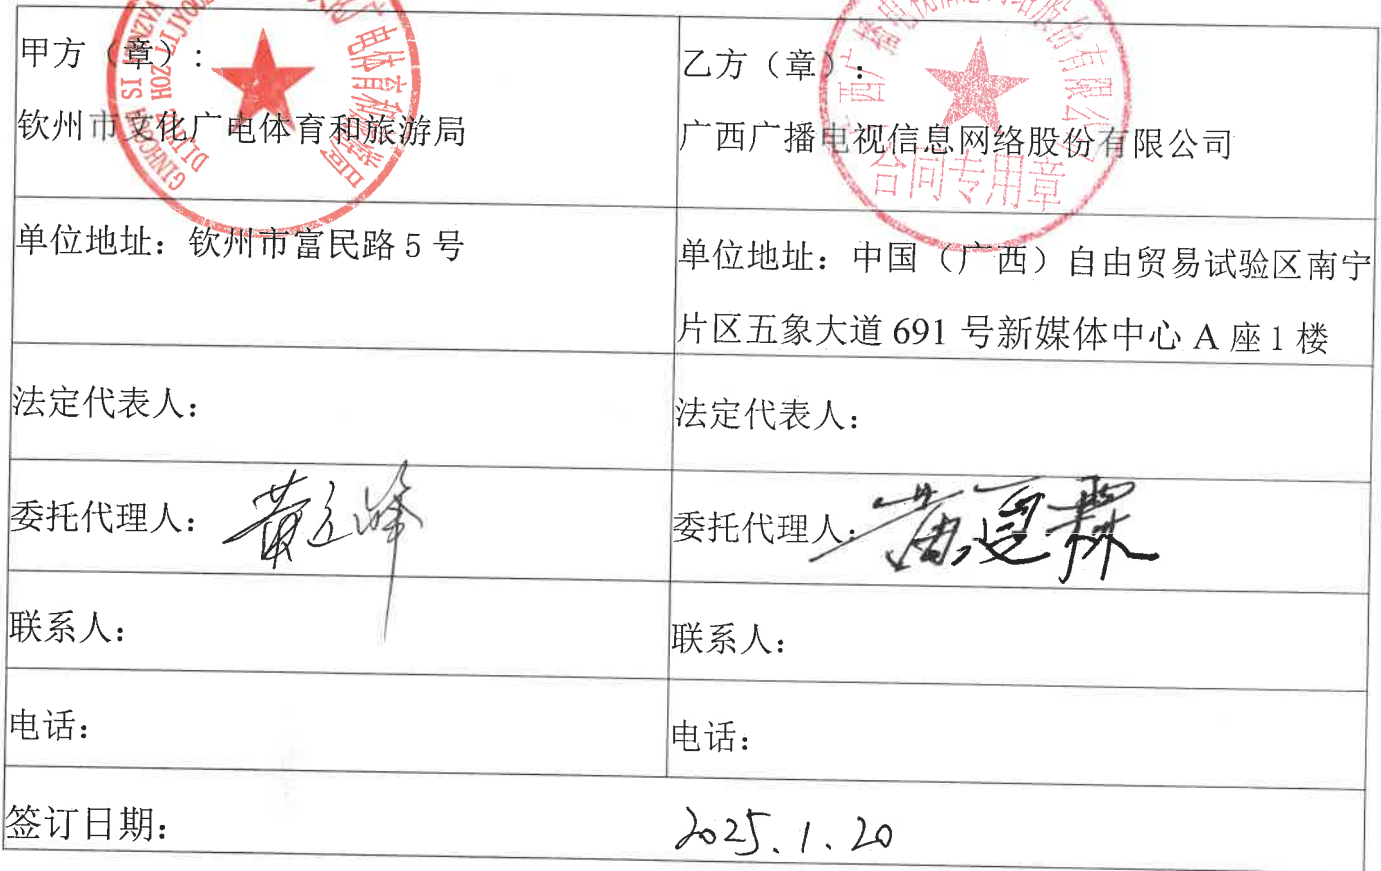 甲方（章）:
钦州市文化广电体育和旅游局
乙方（章）:
广西广播电视信息网络股份有限公司
合同专用章
单位地址：钦州市富民路 5 号
单位地址：中国（广西）自由贸易试验区南宁
片区五象大道 691 号新媒体中心 A 座 1 楼
法定代表人：
法定代表人：
委托代理人：
委托代理人：
联系人：
联系人：
电话：
电话：
签订日期：
2025.1.20